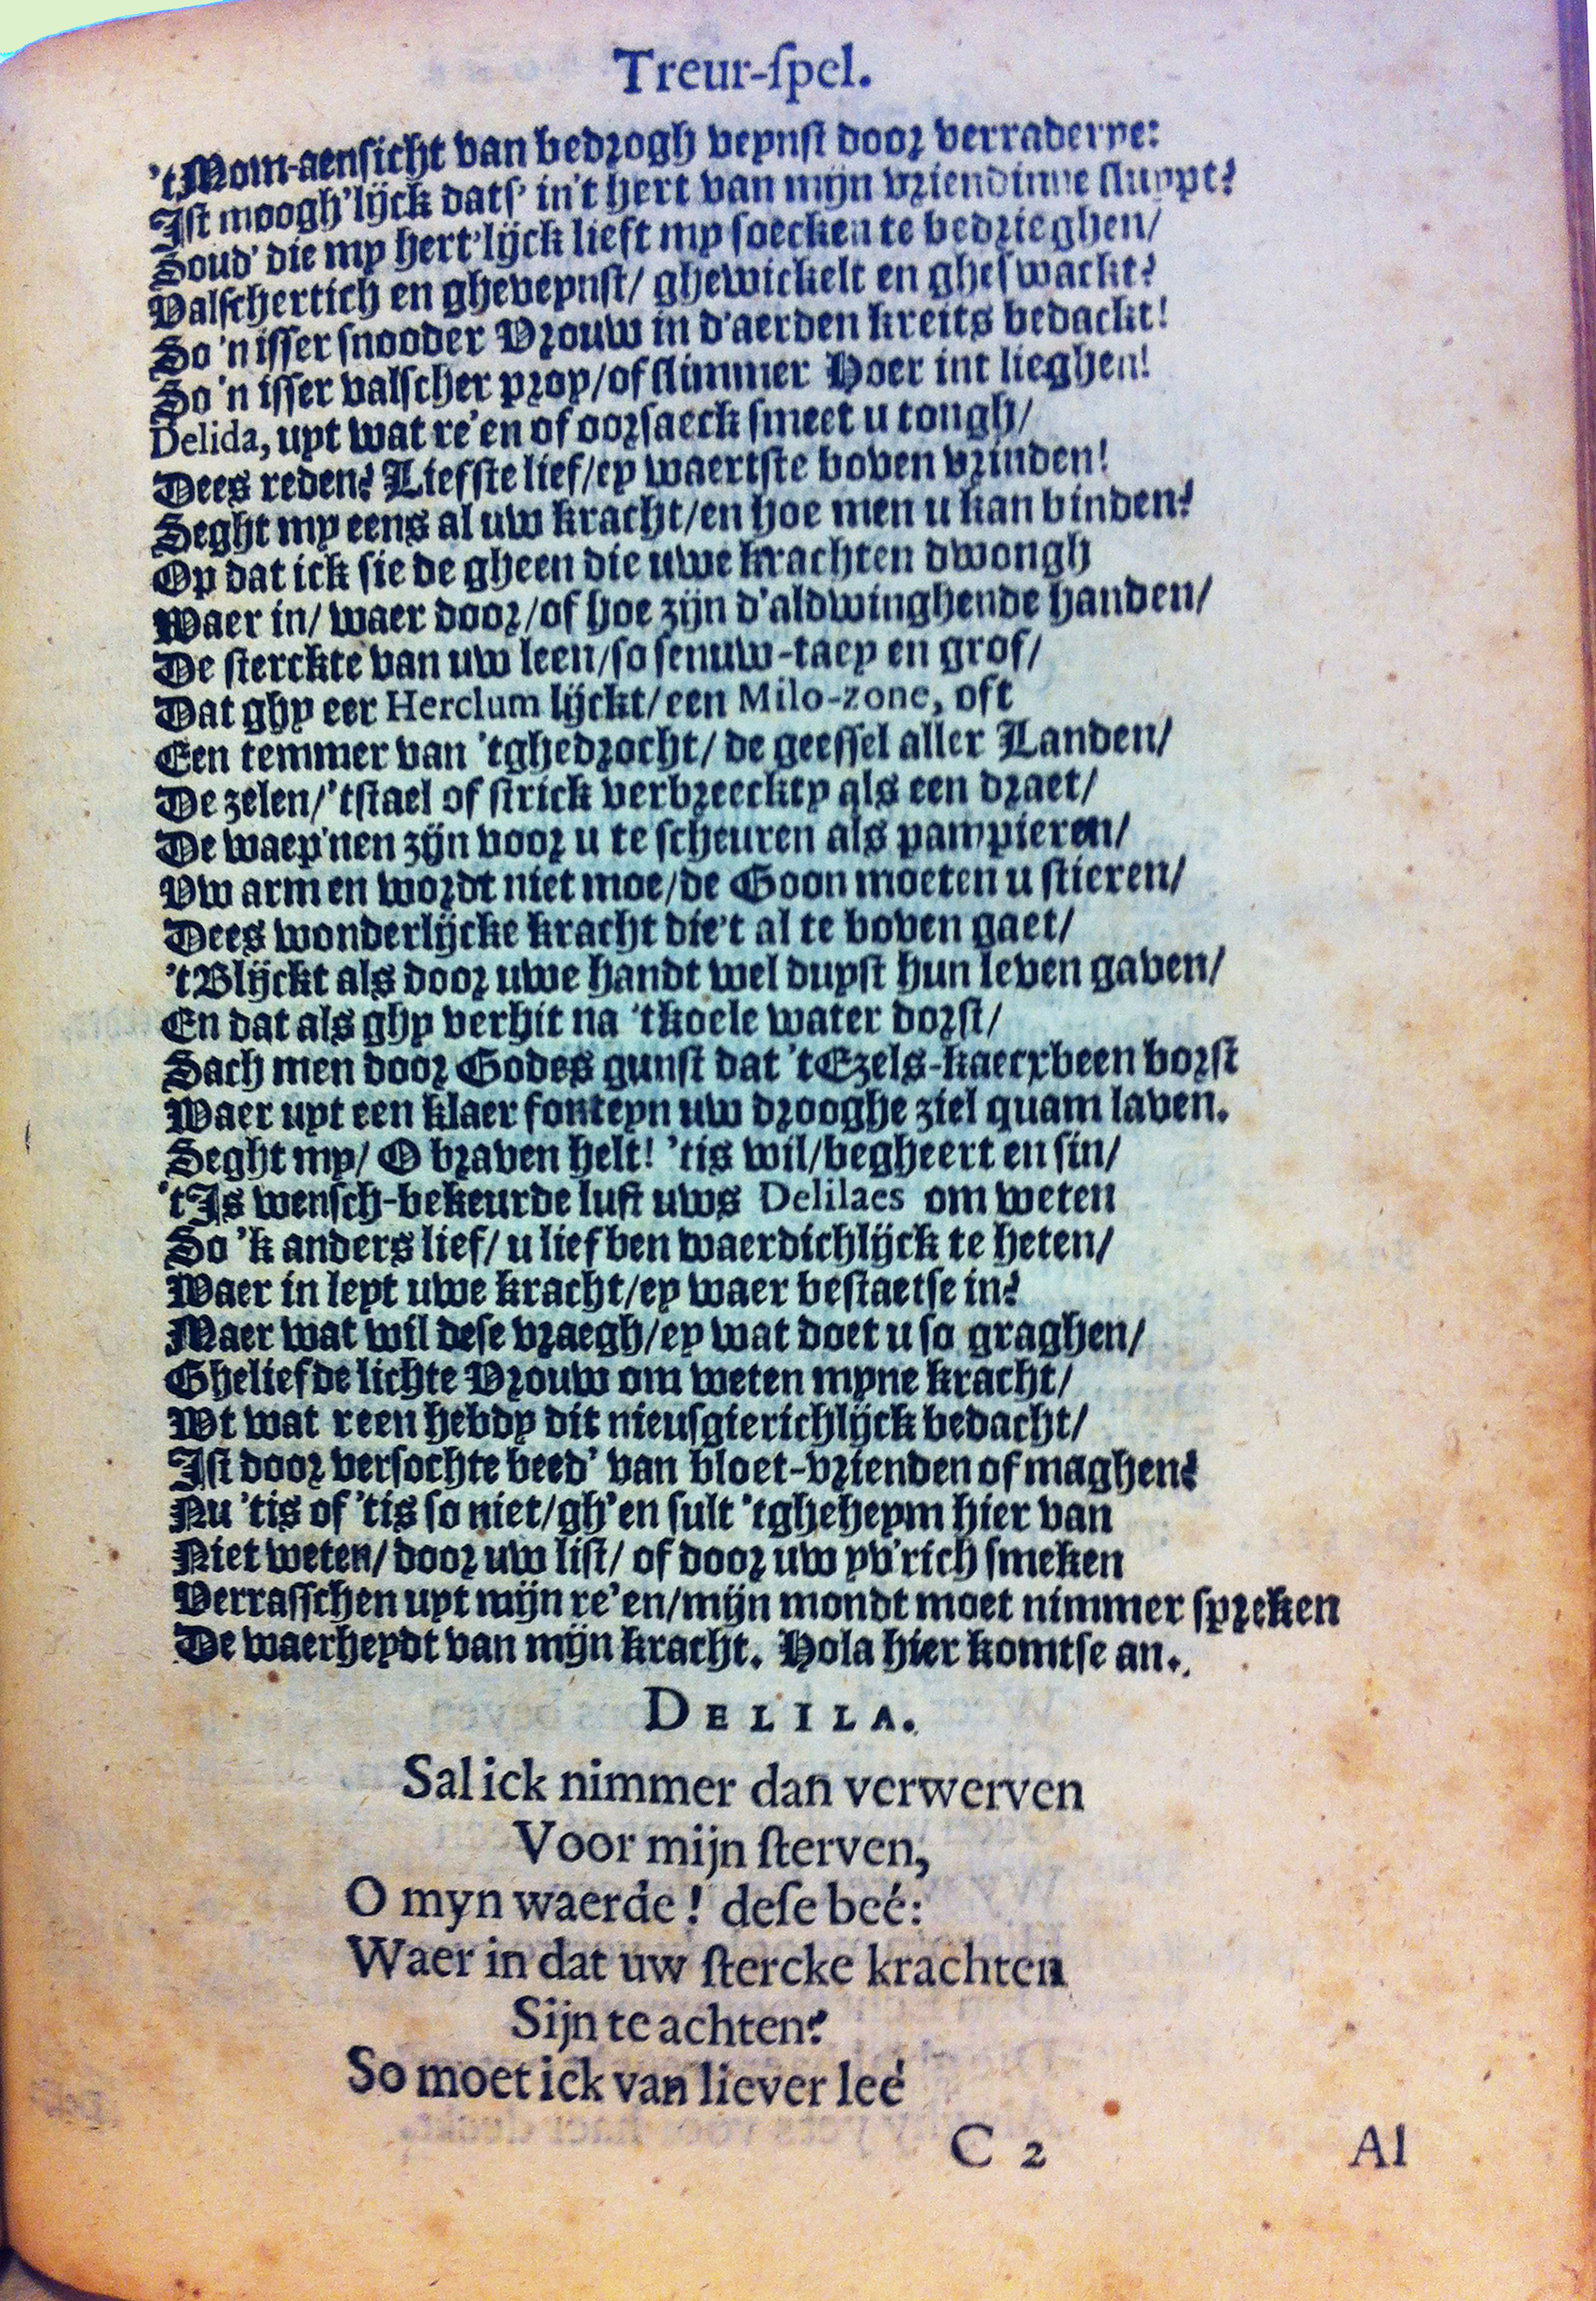 Treur-ſpel.
'tMom-aenſicht van bedrogh veynſt door verraderye:
Iſt moogh'lijck datſ' in't hert van mijn vriendinne ſluypt?
Soud' die my hert'lijck lieft my ſoecken te bedrieghen/
Valſchertich en gheveynſt/ ghewickelt en gheſwackt?
So 'n iſſer ſnooder Vrouw in d'aerden kreits bedackt!
So 'n iſſer valſcher proy/of ſlimmer Hoer int lieghen!
Delida, uyt wat re'en of oorſaeck ſmeet u tongh/
Dees reden? Liefſte lief/ey waertſte boven vrinden!
Seght my eens al uw kracht/en hoe men u kan binden?
Op dat ick ſie de gheen die uwe krachten dwongh
Waer in/ waer door/of hoe zijn d'aldwinghende handen/
De ſterckte van uw leen/ſo ſenuw-taey en grof/
Dat ghy eer Herclum lijckt/een Milo-zone, oft
Een temmer van 'tghedrocht/ de geeſſel aller Landen/
De zelen/'tſtael of ſtrick verbreeckty als een draet/
De waep'nen zijn voor u te ſcheuren als pampieren/
Vw armen wordt niet moe/de Goon moeten u ſtieren/
Dees wonderlijcke kracht die't al te boven gaet/
'tBlijckt als door uwe handt wel duyſt hun leven gaven/
En dat als ghy verhit na 'tkoele water dorſt/
Sach men door Godes gunſt dat 'tEzels-kaecxbeen borſt
Waer uyt een klaer fonteyn uw drooghe ziel quam laven.
Seght my/ O braven helt! 'tis wil/begheert en ſin/
'tIs wenſch-bekeurde luſt uws Delilaes om weten
So 'k anders lief/ u lief ben waerdichlijck te heten/
Waer in leyt uwe kracht/ey waer beſtaetſe in?
Maer wat wil deſe vraegh/ey wat doet u ſo graghen/
Gheliefde lichte Vrouw om weten myne kracht/
Wt wat reen hebdy dit nieuſgierichlijck bedacht/
Iſt door verſochte beed' van bloet-vrienden of maghen?
Nu 'tis of 'tis ſo niet/gh'en ſult 'tgheheym hier van
Niet weten/ door uw liſt/ of door uw yv'rich ſmeken
Verraſſchen uyt mijn re'en/mijn mondt moet nimmer ſpreken
De waerheydt van mijn kracht. Hola hier komtſe an.
DELILA.
Sal ick nimmer dan verwerven
Voor mijn ſterven,
O myn waerde! deſe beé:
Waer in dat uw ſtercke krachten
Sijn te achten?
So moet ick van liever leé
C 2
Al